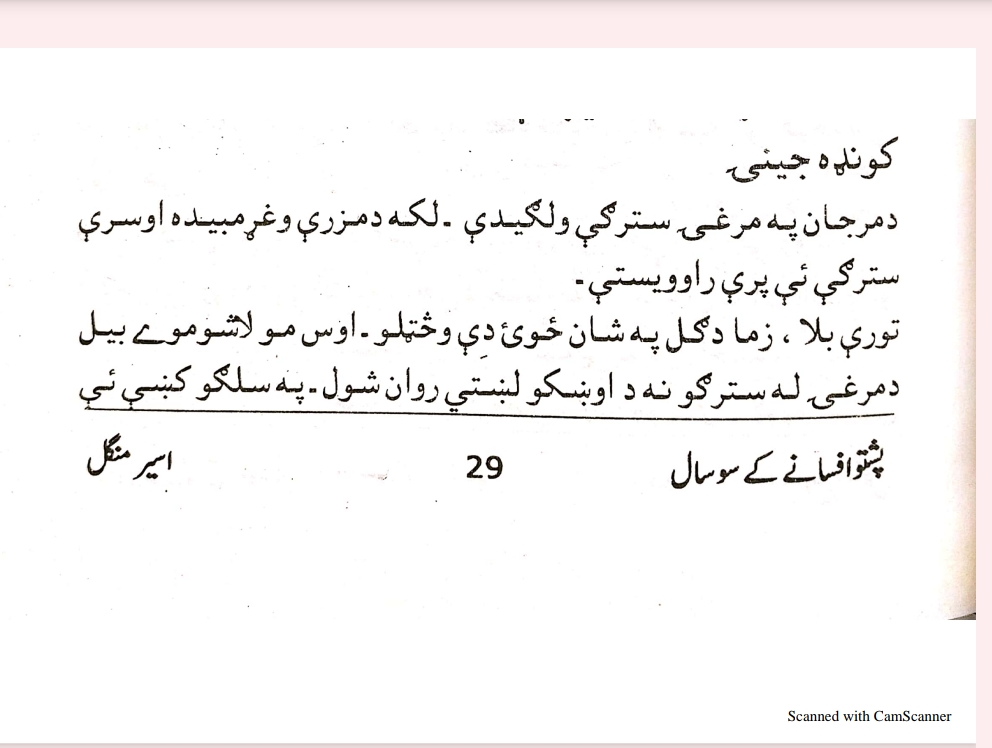 کونډه جينۍ
دمرجان په مرغۍ سترګې ولګيدې ۔ لکه دمزرې وغړمبيده اوسرې
سترګې ئې پرې راوويستې۔
تورې بلا ، زما دګل په شان ځوئ دې وڅټلو۔ اوس مو لاشوموے بيل
دمرغۍ له سترګو نه د اوښکو لښتي روان شول۔ په سلګو کښې ئې
پشتو افسانے کے سو سال 29 اسیر منگل
Scanned with CamScanner